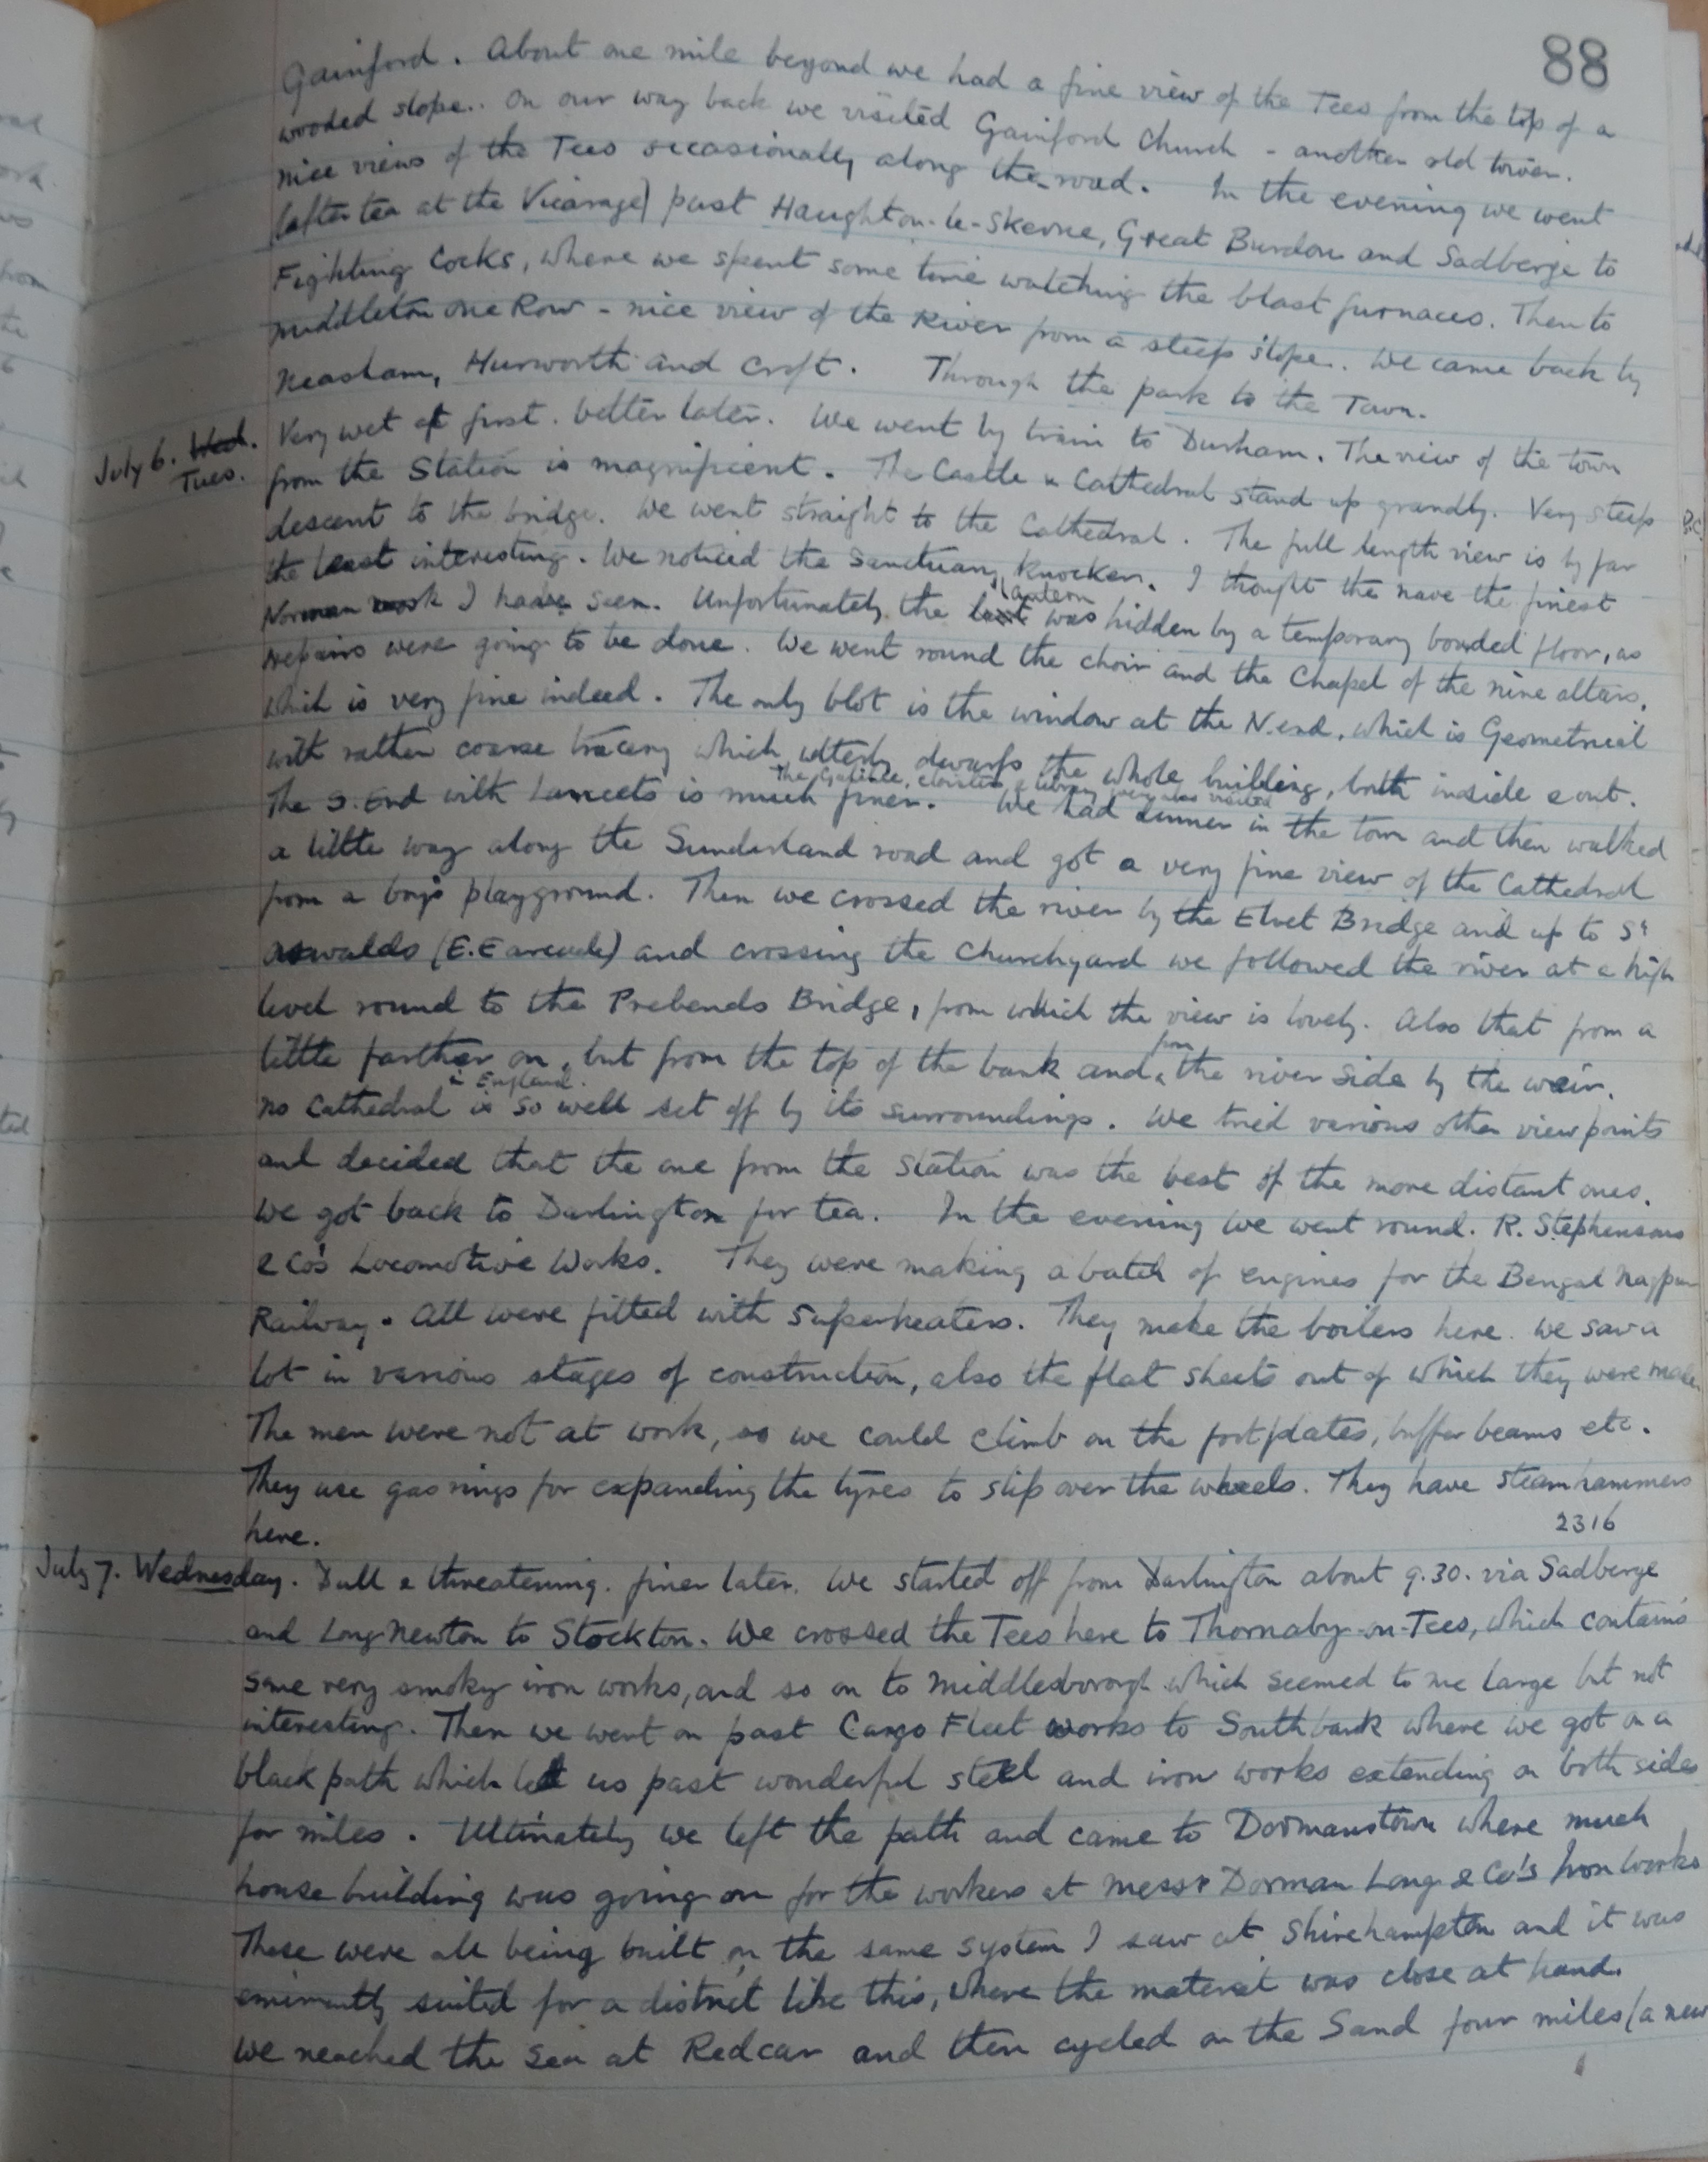 88
Gainford. About one mile beyond we had a fine view of the Tees from the top of a
wooded slope.. On our way back we visited Gainford Church - another old tower.
nice views of the Tees occasionally along the road. In the evening we went
(after tea at the Vicarage) past Haughton-le-Skerne, Great Burdon and Sadberge to
Fighting Cocks, where we spent some time watching the blast furnaces. Then to
Middleton One Row - nice view of the River from a steep slope. We came back by
Neasham, Hurworth and Croft. Through the park to the Town.
July 6. Wed. Very wet at first. better later. We went by train to Durham. The view of the town
Tues. from the Station is magnificent. The Castle & Cathedral stand up grandly. Very steep
descent to the bridge. We went straight to the Cathedral. The full length view is by far
the least interesting. We noticed the Sanctuary Knocker. I thought the nave the finest
Norman work I have seen. Unfortunately the lantern was hidden by a temporary boarded floor, as
repairs were going to be done. We went round the choir and the Chapel of the nine altars,
which is very fine indeed. The only blot is the window at the N.end, which is Geometrical
with rather coarse tracery which utterly dwarfs the whole building, both inside & out.
The Galilee, cloisters & library were also visited
The S. End with Lancets is much finer. We had dinner in the town and then walked
a little way along the Sunderland road and got a very fine view of the Cathedral
from a boys playground. Then we crossed the river by the Elvet Bridge and up to St
Oswalds (E.E arcade) and crossing the Churchyard we followed the river at a high
level round to the Prebends Bridge, from which the view is lovely. Also that from a
little farther on, but from the top of the bank and from the river side by the weir.
No Cathedral in England is so well set off by its surroundings. We tried various other viewpoints
and decided that the one from the station was the best of the more distant ones.
We got back to Darlington for tea. In the evening we went round. R. Stephensons
& Co's Locomotive Works. They were making a batch of engines for the Bengal Nagpur
Railway. All were fitted with Superheaters. They make the boilers here. We saw a
lot in various stages of construction, also the flat sheets out of which they were made.
The men were not at work, so we could climb on the footplates, buffer beams etc.
They use gas rings for expanding the tyres to slip over the wheels. They have steam hammers
here. 2316
July 7. Wednesday. Dull & threatening. finer later. We started off from Darlington about 9.30. via Sadberge
and Long Newton to Stockton. We crossed the Tees here to Thornaby-on-Tees, which contains
some very smoky iron works, and so on to Middlesborough which seemed to me large but not
interesting. Then we went on past Cargo Fleet works to Southbank where we got on a
black path which led us past wonderful steel and iron works extending on both sides
for miles. Ultimately we left the path and came to Dormanstown where much
house building was going on for the workers at Messrs Dorman Long & Co's Iron Works
These were all being built on the same system I saw at Shirehampton and it was
eminently suited for a district like this, where the material was close at hand.
We reached the sea at Redcar and then cycled on the Sand four miles (a new